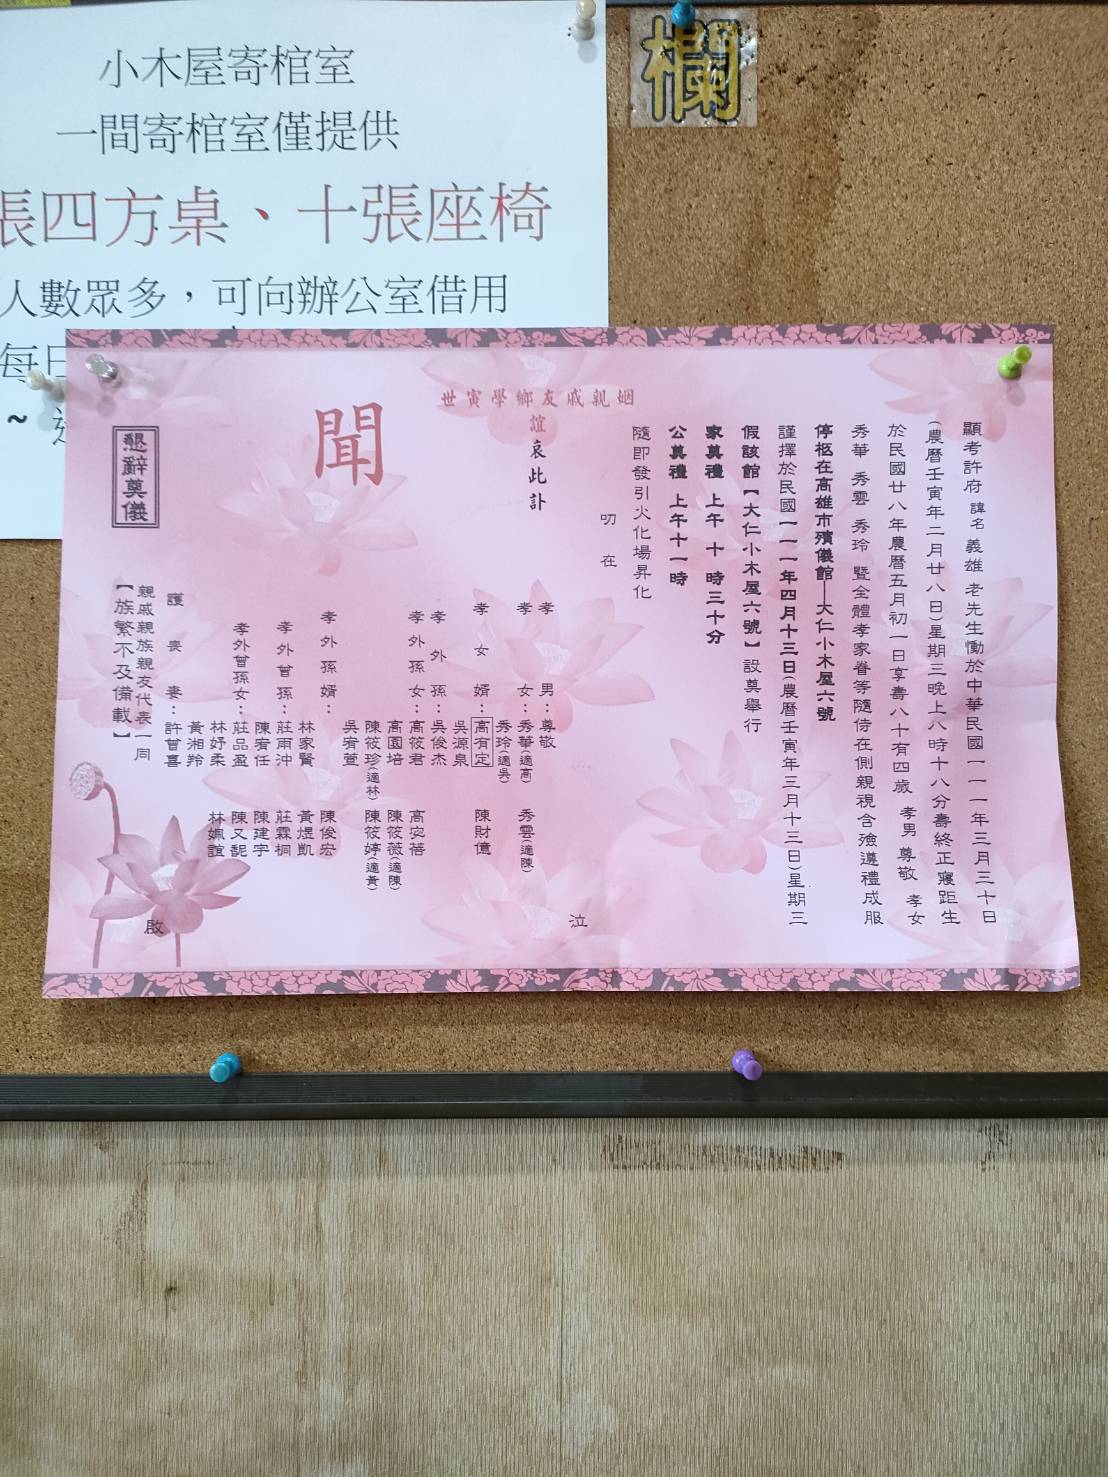 欄
小木屋寄棺室
一間寄棺室僅提供
張四方桌、十張座椅
人數眾多，可向辦公室借用
每日
~
顯考許府 諱名 義雄 老先生慟於中華民國一一一年三月三十日
(農曆壬寅年二月廿八日)星期三晚上八時十八分壽終正寢距生
於民國廿八年農曆五月初一日享壽八十有四歲 孝男 尊敬 孝女
秀華 秀雲 秀玲 暨全體孝家眷等隨侍在側親視含殮遵禮成服
停柩在高雄市殯儀館—大仁小木屋六號
謹擇於民國一一一年四月十三日(農曆壬寅年三月十三日)星期三
假該館【大仁小木屋六號】設奠舉行
家奠禮 上午 十 時三十分
公奠禮 上午十一時
隨即發引火化場昇化
叨在
姻親戚友鄉學寅世
誼哀此訃
聞
孝男：尊敬
孝女：秀華(適高) 秀雲(適陳)
秀玲(適吳)
孝女婿：高有定 陳財億
吳源泉
孝外孫：吳俊杰
孝外孫女：高筱君 高宓蓓
高園培 陳筱薇(適陳)
陳筱珍(適林) 陳筱婷(適黃)
吳宥萱
孝外孫婿： 陳俊宏
林家賢 黃煜凱
孝外曾孫：莊雨沖 莊霖桐
陳宥任 陳建宇
孝外曾孫女：莊品盈 陳又馜
林妤柔 林姵誼
黃湘羚
護喪妻：許曾喜
泣
親戚親族親友代表一同
【族繁不及備載】
啟
懇辭奠儀